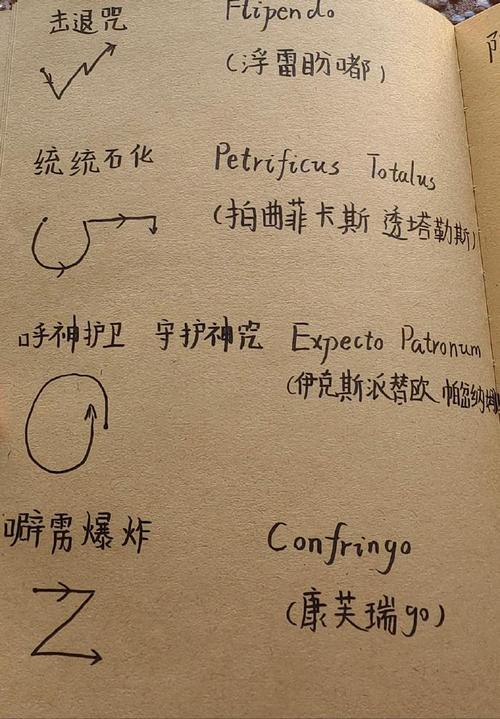 击退咒 Flipendo
（浮雷盼嘟）
统统石化 Petrificus Totalus
（拍曲菲卡斯 透塔勒斯）
呼神护卫 守护神咒 Expecto Patronum
（伊克斯派替欧 帕忽纳姆
噼雳爆炸 Confringo
（康芙瑞go）